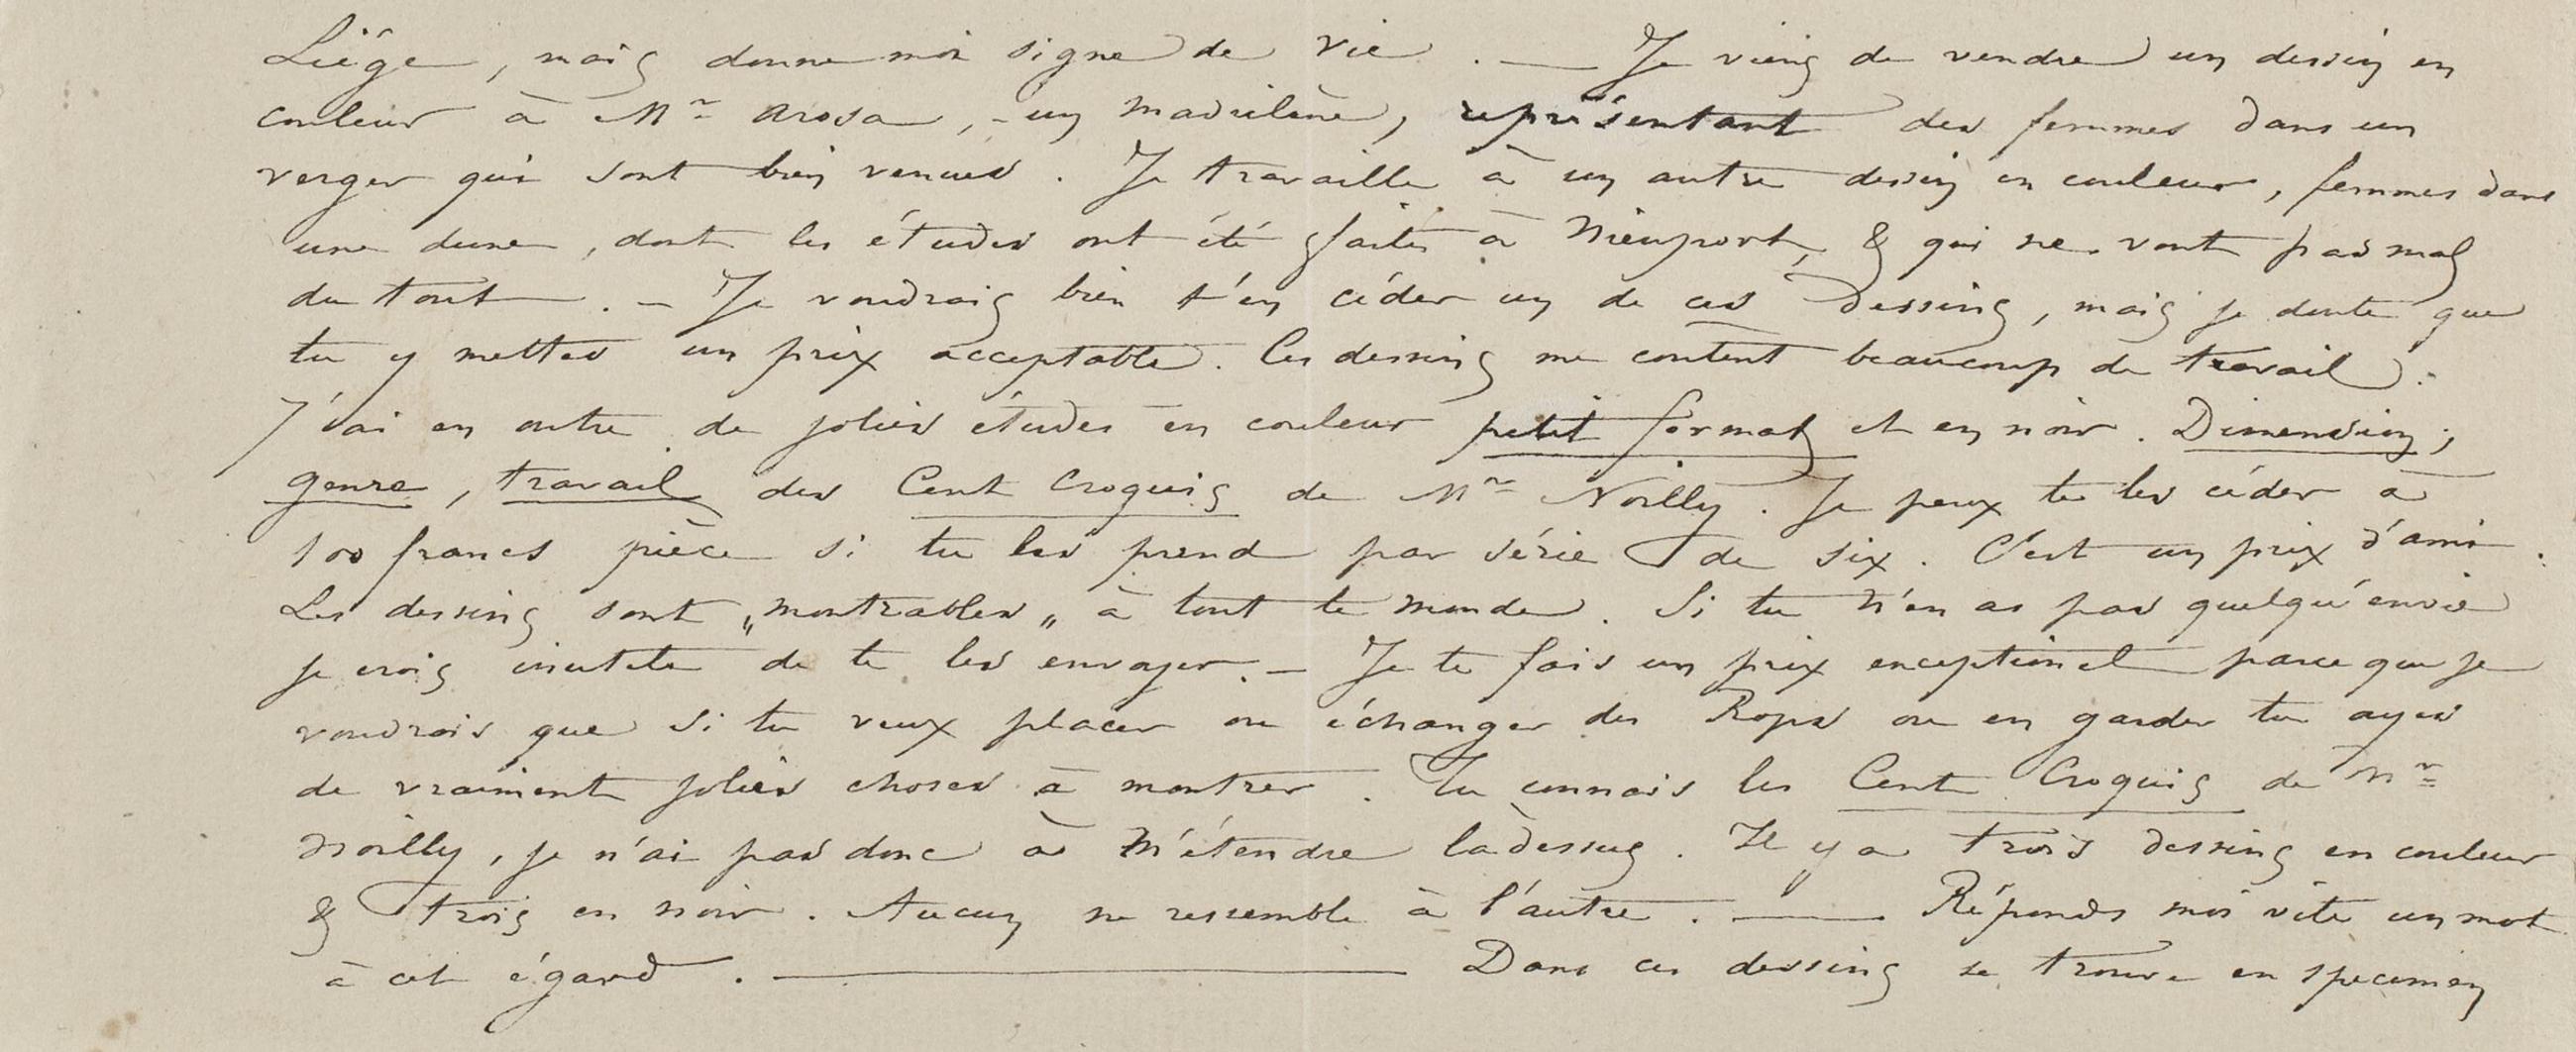 Liége, mais donne moi signe de vie. — Je viens de vendre un dessin en
couleur à Mr Arosa, – un madrilène, représentant des femmes dans un
verger qui sont bien venues. Je travaille à un autre dessin en couleur, femmes dans
une dune, dont les études ont été faites à Nieuport, & qui ne vont pas mal
du tout. – Je voudrais bien t'en céder un de ces Dessins, mais je doute que
tu y mettes un prix acceptable. Ces dessins me coutent beaucoup de travail.
J'ai en outre de jolies études en couleur petit format et en noir. Dimension,
genre, travail des Cent Croquis de Mr Noilly. Je peux te les céder à
100 francs pièce si tu les prend par série de six. C'est un prix d'ami.
Les dessins sont „montrables„ à tout le monde. Si tu n'en as pas quelqu'envie
je crois inutile de te les envoyer. – Je te fais un prix exceptionel parce que je
voudrais que si tu veux placer ou échanger des Rops ou en garder tu ayes
de vraiment jolies choses à montrer. Tu connais les Cent Croquis de Mr
Noilly, je n'ai pas donc à m'étendre làdessus. Il y a trois dessins en couleur
& trois en noir. Aucun ne ressemble à l'autre. — Réponds moi vite un mot
à cet égard. — Dans ces dessins se trouve en specimen